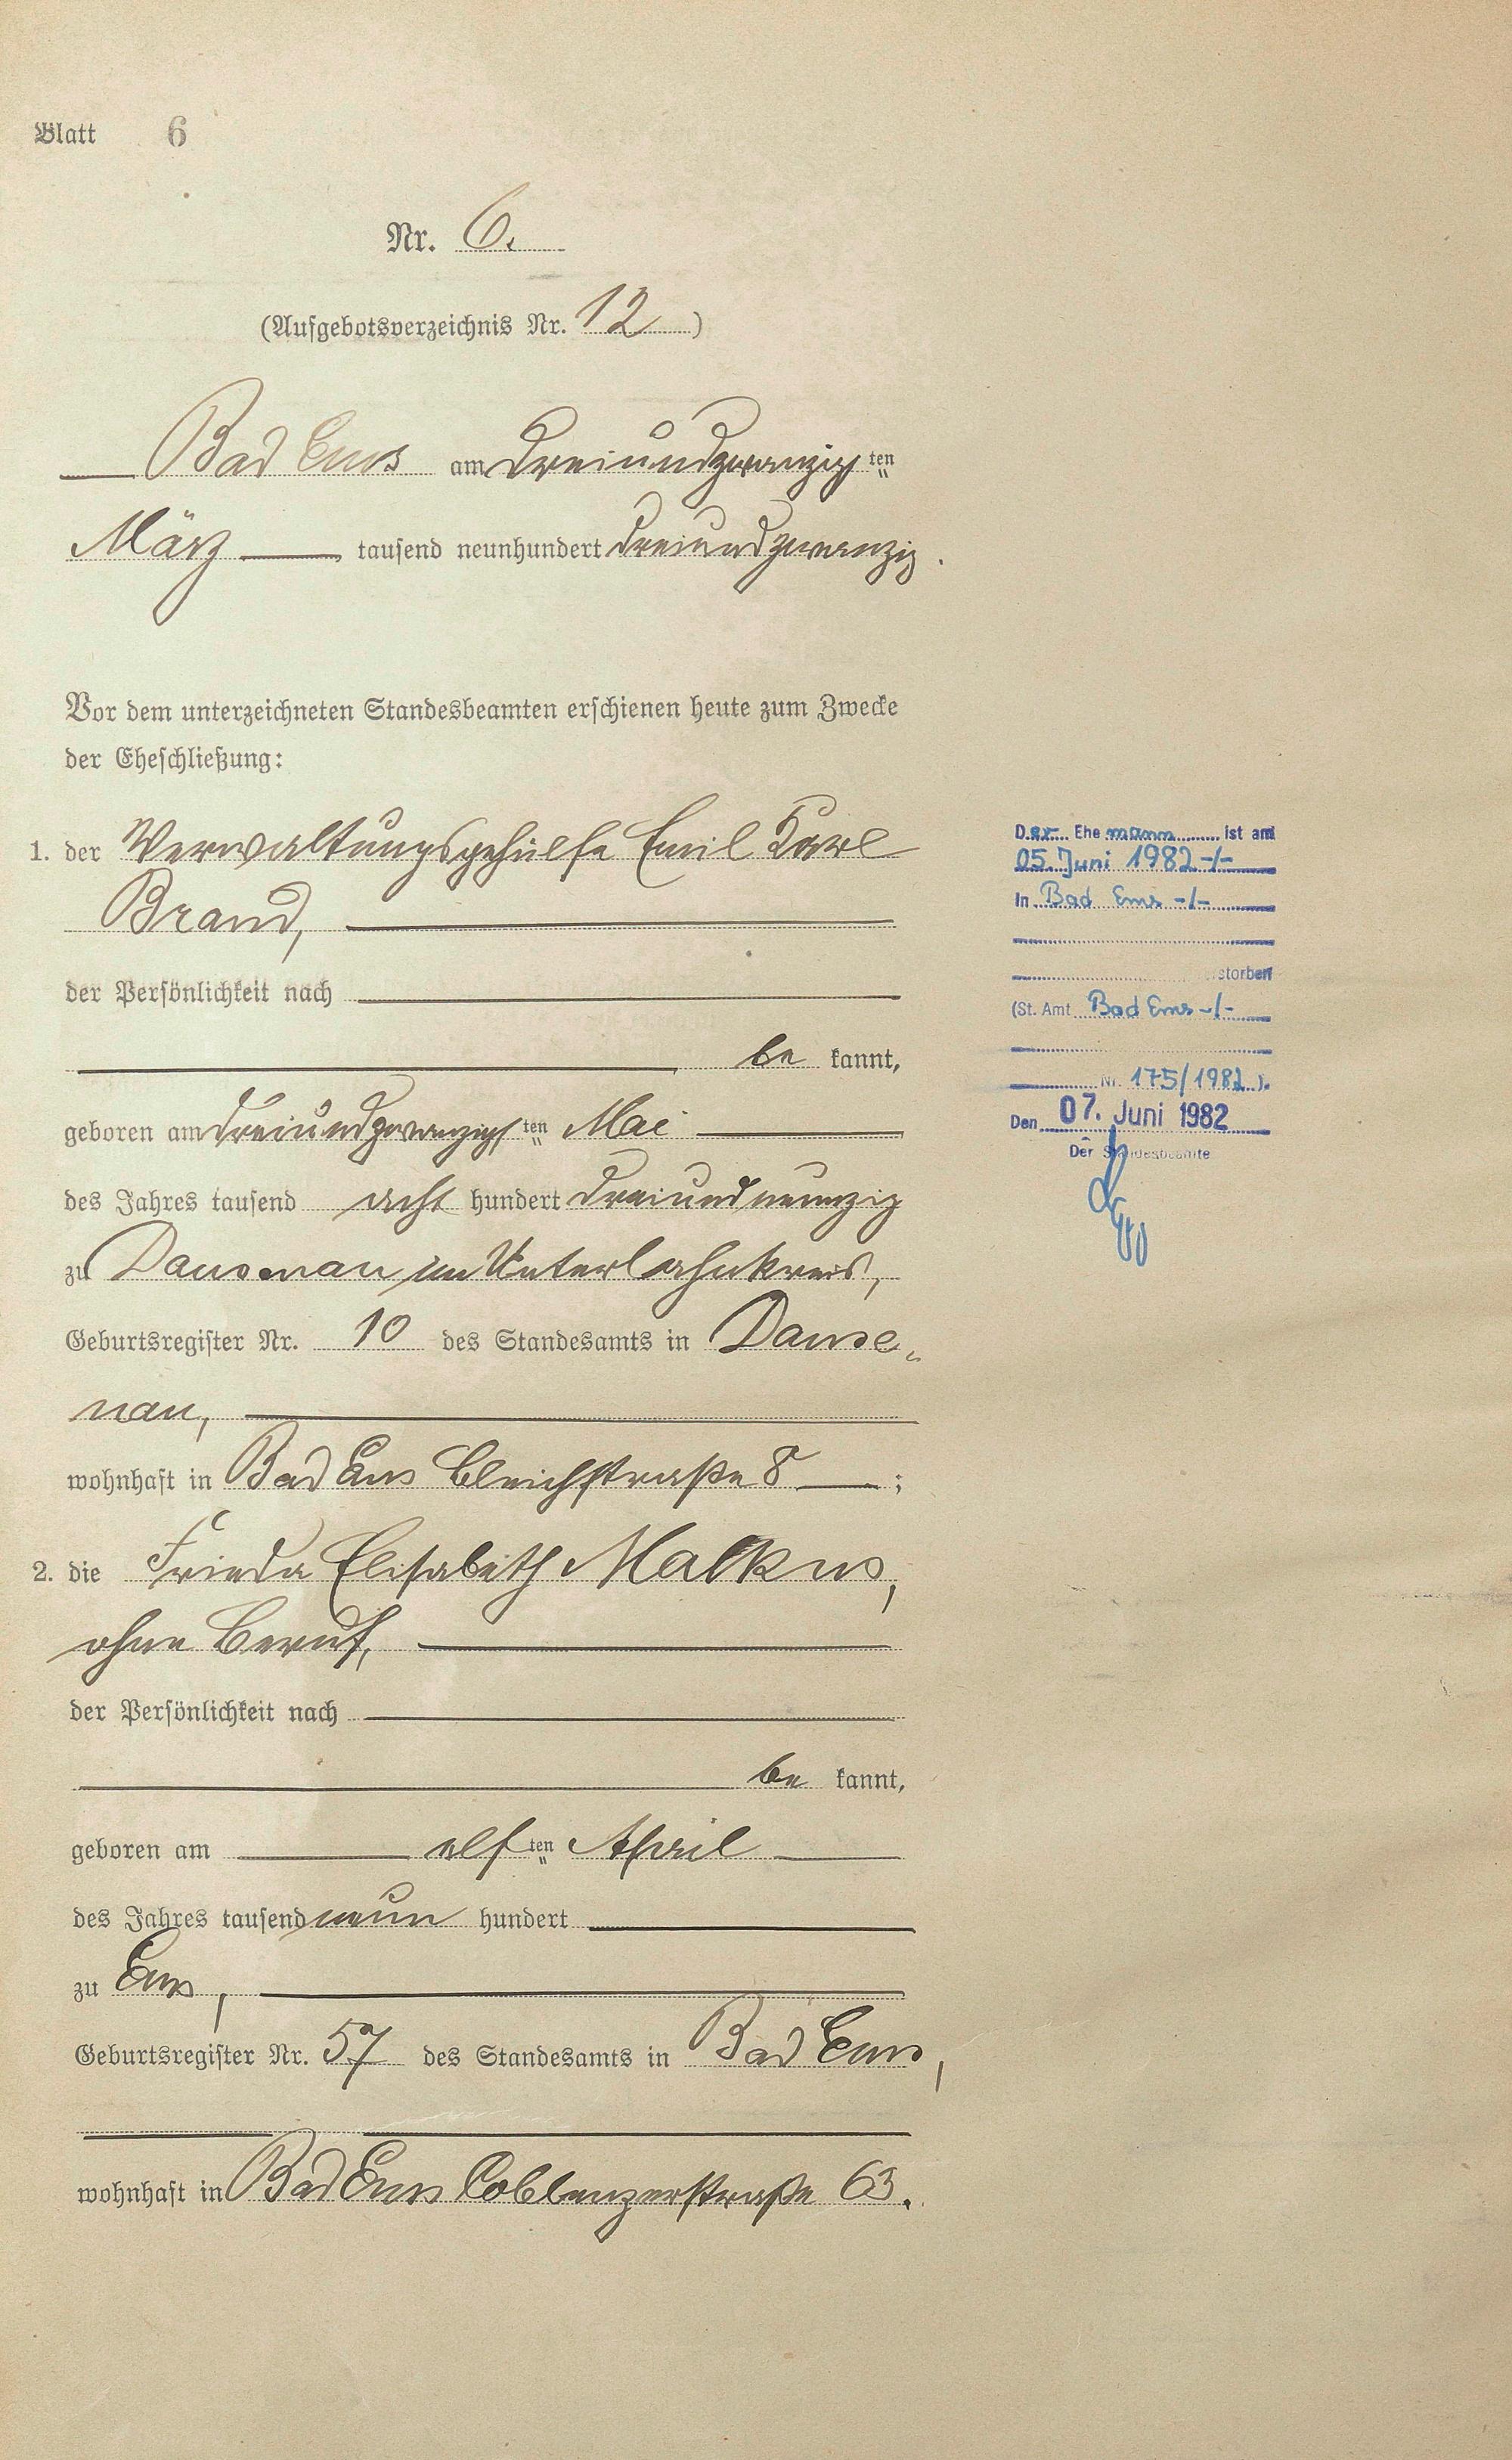 Blatt 6
Nr. 6.
(Aufgebotsverzeichnis Nr. 12)
Bad Ems am dreiundzwanzigten
März tausend neunhundert dreiundzwanzig.
Vor dem unterzeichneten Standesbeamten erschienen heute zum Zwecke
der Eheschließung:
1. der Verwaltungsgehülfe Emil Karl
Brand,
der Persönlichkeit nach
be kannt,
geboren am dreiundzwanzigten Mai
des Jahres tausend acht hundert dreiundneunzig
zu Dausenau im Unterlahnkreis,
Geburtsregister Nr. 10 des Standesamts in Dause„
nau,
wohnhaft in Bad Ems Bleichstraße 8 ;
2. die Frieda Elisabeth Malkus,
ohne Beruf,
der Persönlichkeit nach
be kannt,
geboren am elften April
des Jahres tausend neun hundert
zu Ems,
Geburtsregister Nr. 57 des Standesamts in Bad Ems,
wohnhaft in Bad Ems Coblenzerstraße 63.
Der Ehemann ist am
05. Juni 1982 -/-
in Bad Ems -/-
storben
(St. Amt Bad Ems -/-
Nr. 175/1982).
Den 07. Juni 1982
Der Standesbeamte